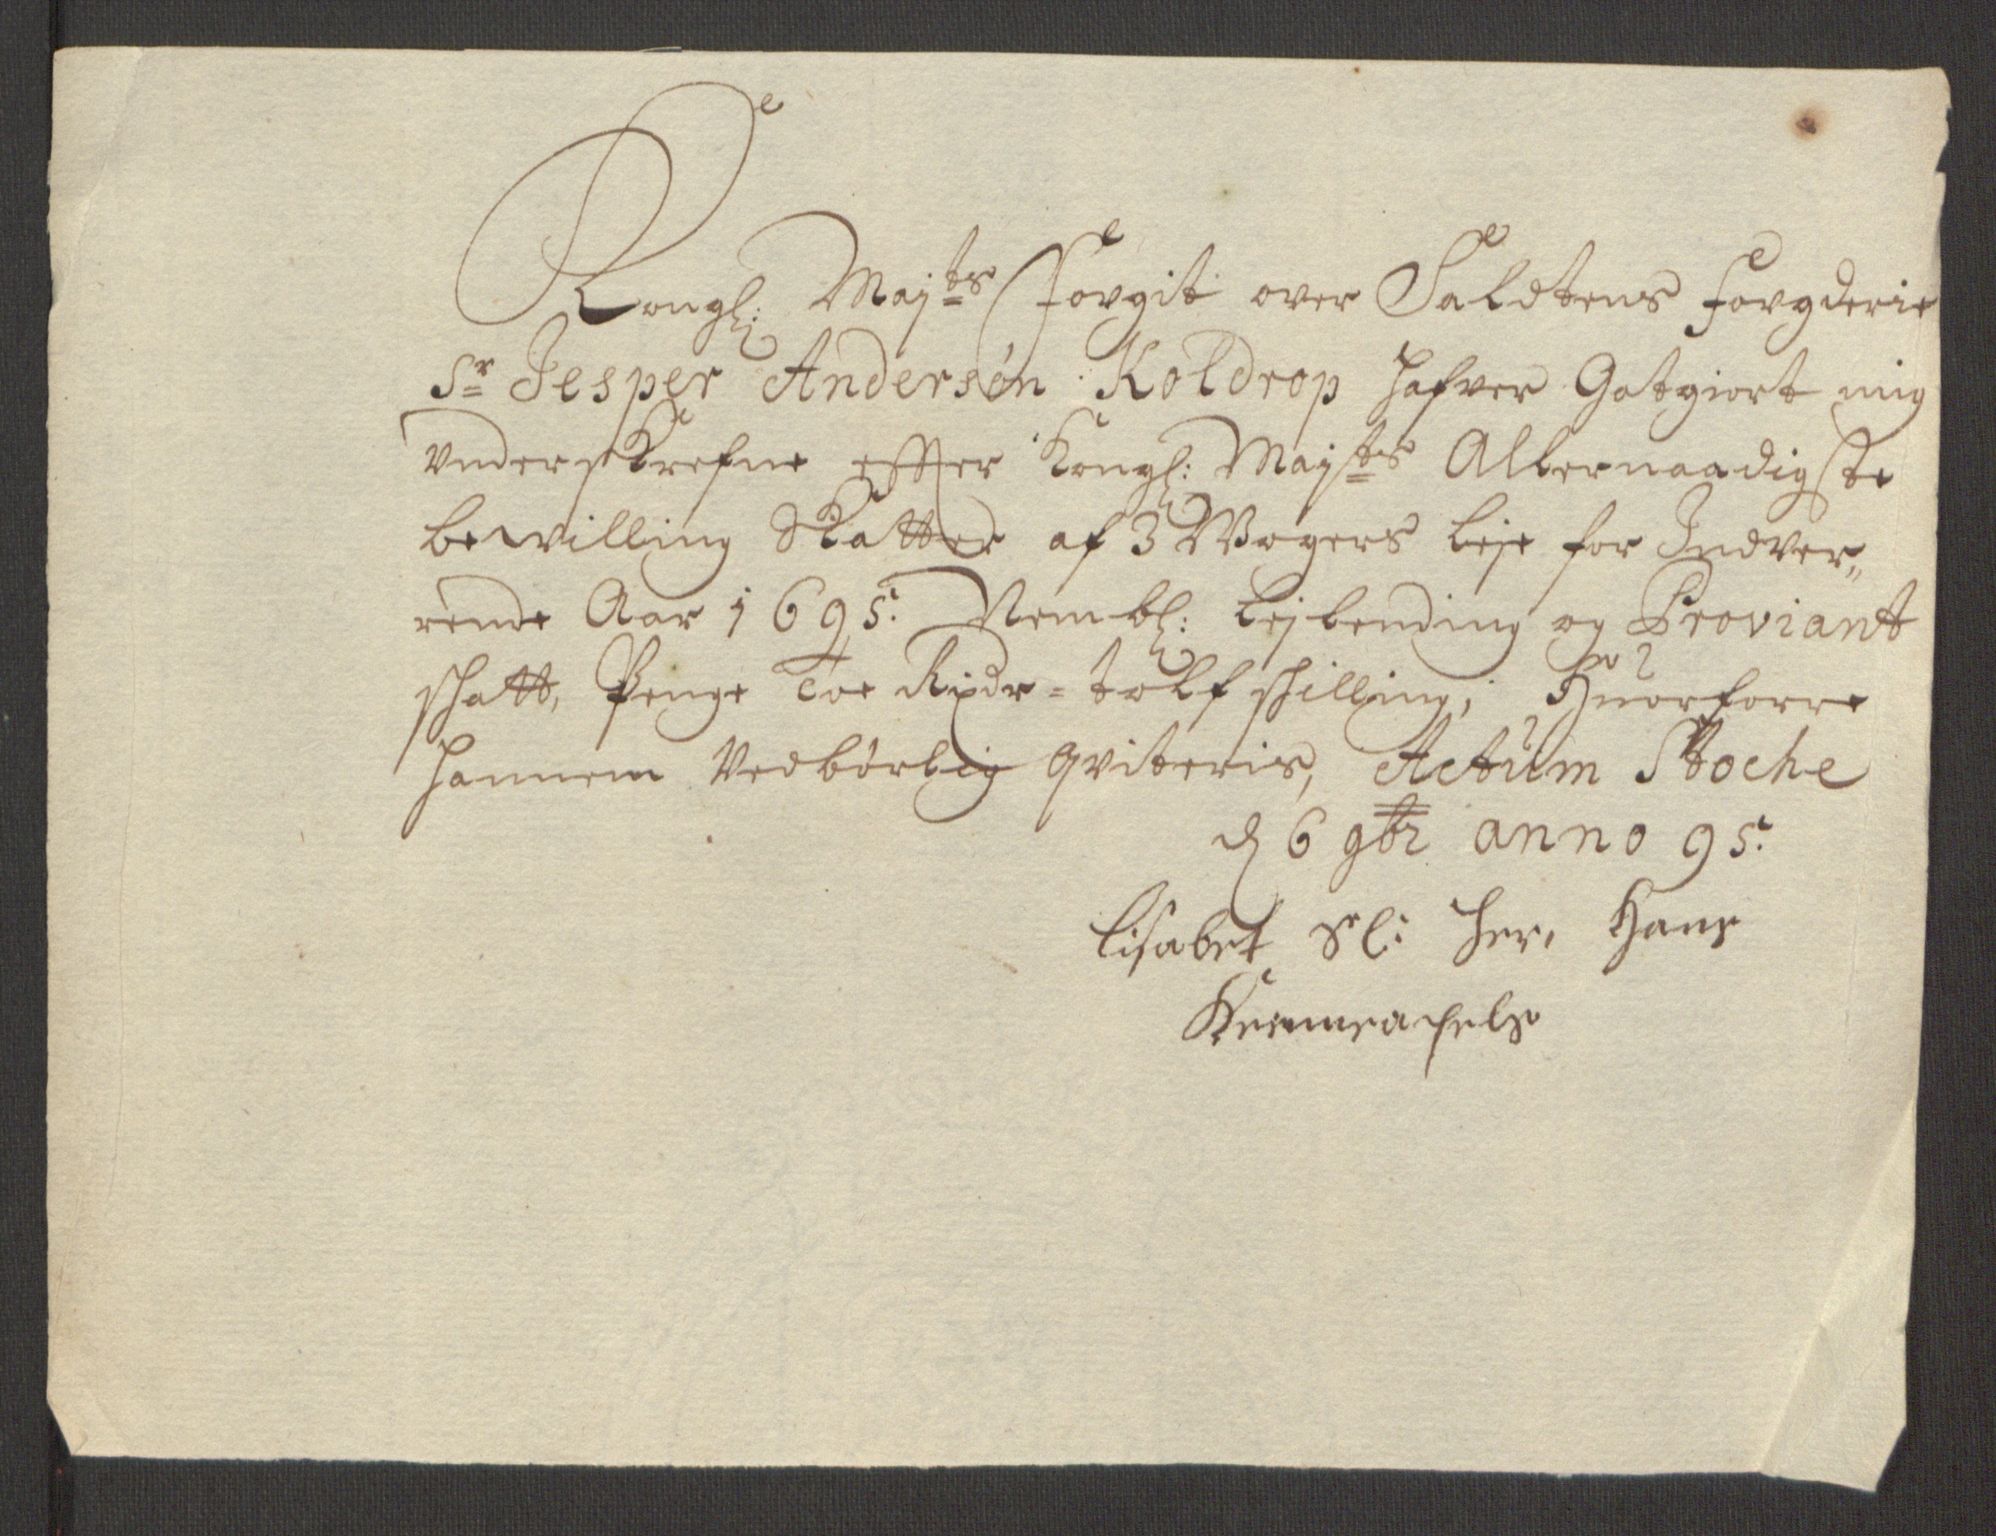 Kongl: Maÿts fovgit over Saldtens fovgderie
Sr Jesper Andersøn Koldrop hafver Gotgiort mig
Underskrefne effter Kongl: Mayts Allernaadigste
bewilling Skatter af 3 Wogers leje for Indver„
rende Aar 1695. Nembl: Lejlending og Proviant
schatt, Penge Toe Rixdr = tolf schilling; Huorforre
hannem Vedbørlig qviteris, Actum Stoche
d 6 9br anno 95.
Lisabet Sl: Her, Hans